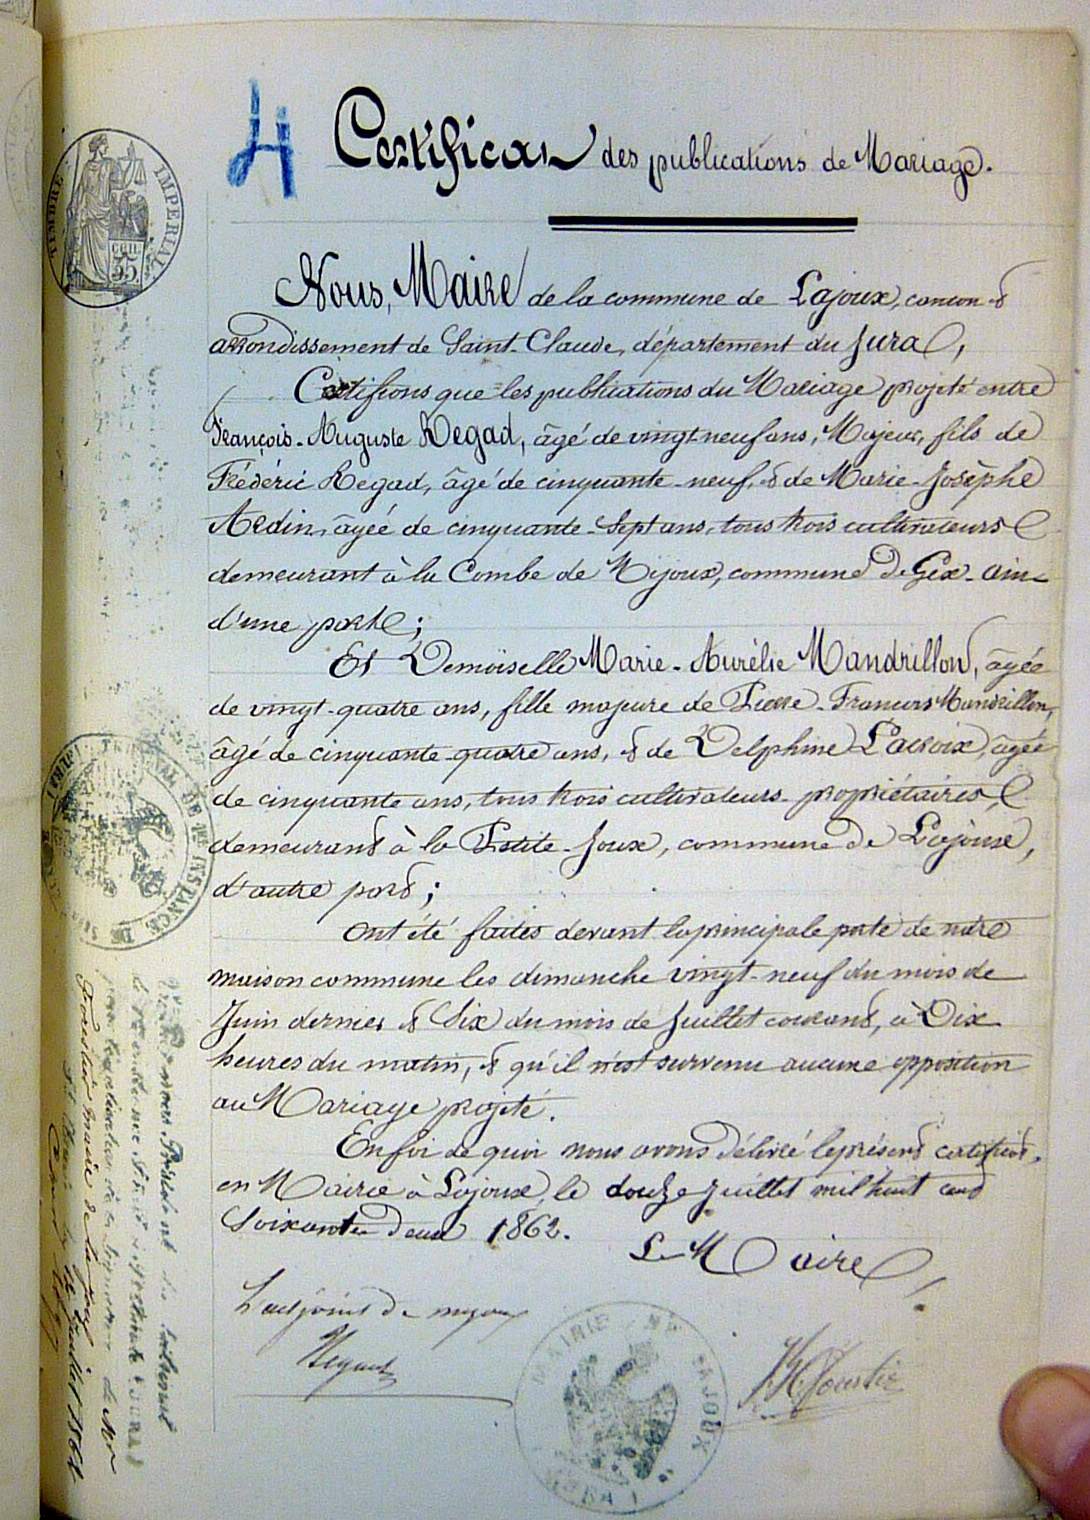 4
Certificat des publications de Mariage.
TIMBRE IMPERIAL
35
Nous, Maire de la commune de Lajoux, canton &
arrondissement de Saint-Claude, département du Jura,
Certifions que les publications du Mariage projeté entre
François-Auguste Regad, âgé de vingt neuf ans, Majeur, fils de
Frédéric Regad, âgé de cinquante-neuf, & de Marie-Josèphe
Ardin, âgée de cinquante-sept ans, tous trois cultivateurs
demeurant à la Combe de Mijoux, commune de Gex-ain
d'une part;
Et Demoiselle Marie-Aurélie Mandrillon, âgée
de vingt-quatre ans, fille majeure de Pierre-François Mandrillon,
âgé de cinquante-quatre ans, & de Delphine Lacroix, âgée
de cinquante ans, tous trois cultivateurs-propriétaires,
demeurant à la Petite-Joux, commune de Lajoux,
d'autre part;
ont été faites devant la principale porte de notre
maison commune les dimanche vingt-neuf du mois de
Juin dernier & Six du mois de Juillet courant, à Dix
heures du matin, & qu'il n'est survenu aucune opposition
au Mariage projeté.
En foi de quoi nous avons délivré le présent certificat.
en Mairie à Lajoux, le douze Juillet mil huit cent
Soixante deux 1862.
Le Maire,
L'adjoint de mijoux
Regad
MAIRIE DE LAJOUX
TRIBUNAL DE 1RE INSTANCE
Président du tribunal
de la signature de Mr
maire de Lajoux
Juillet 1862